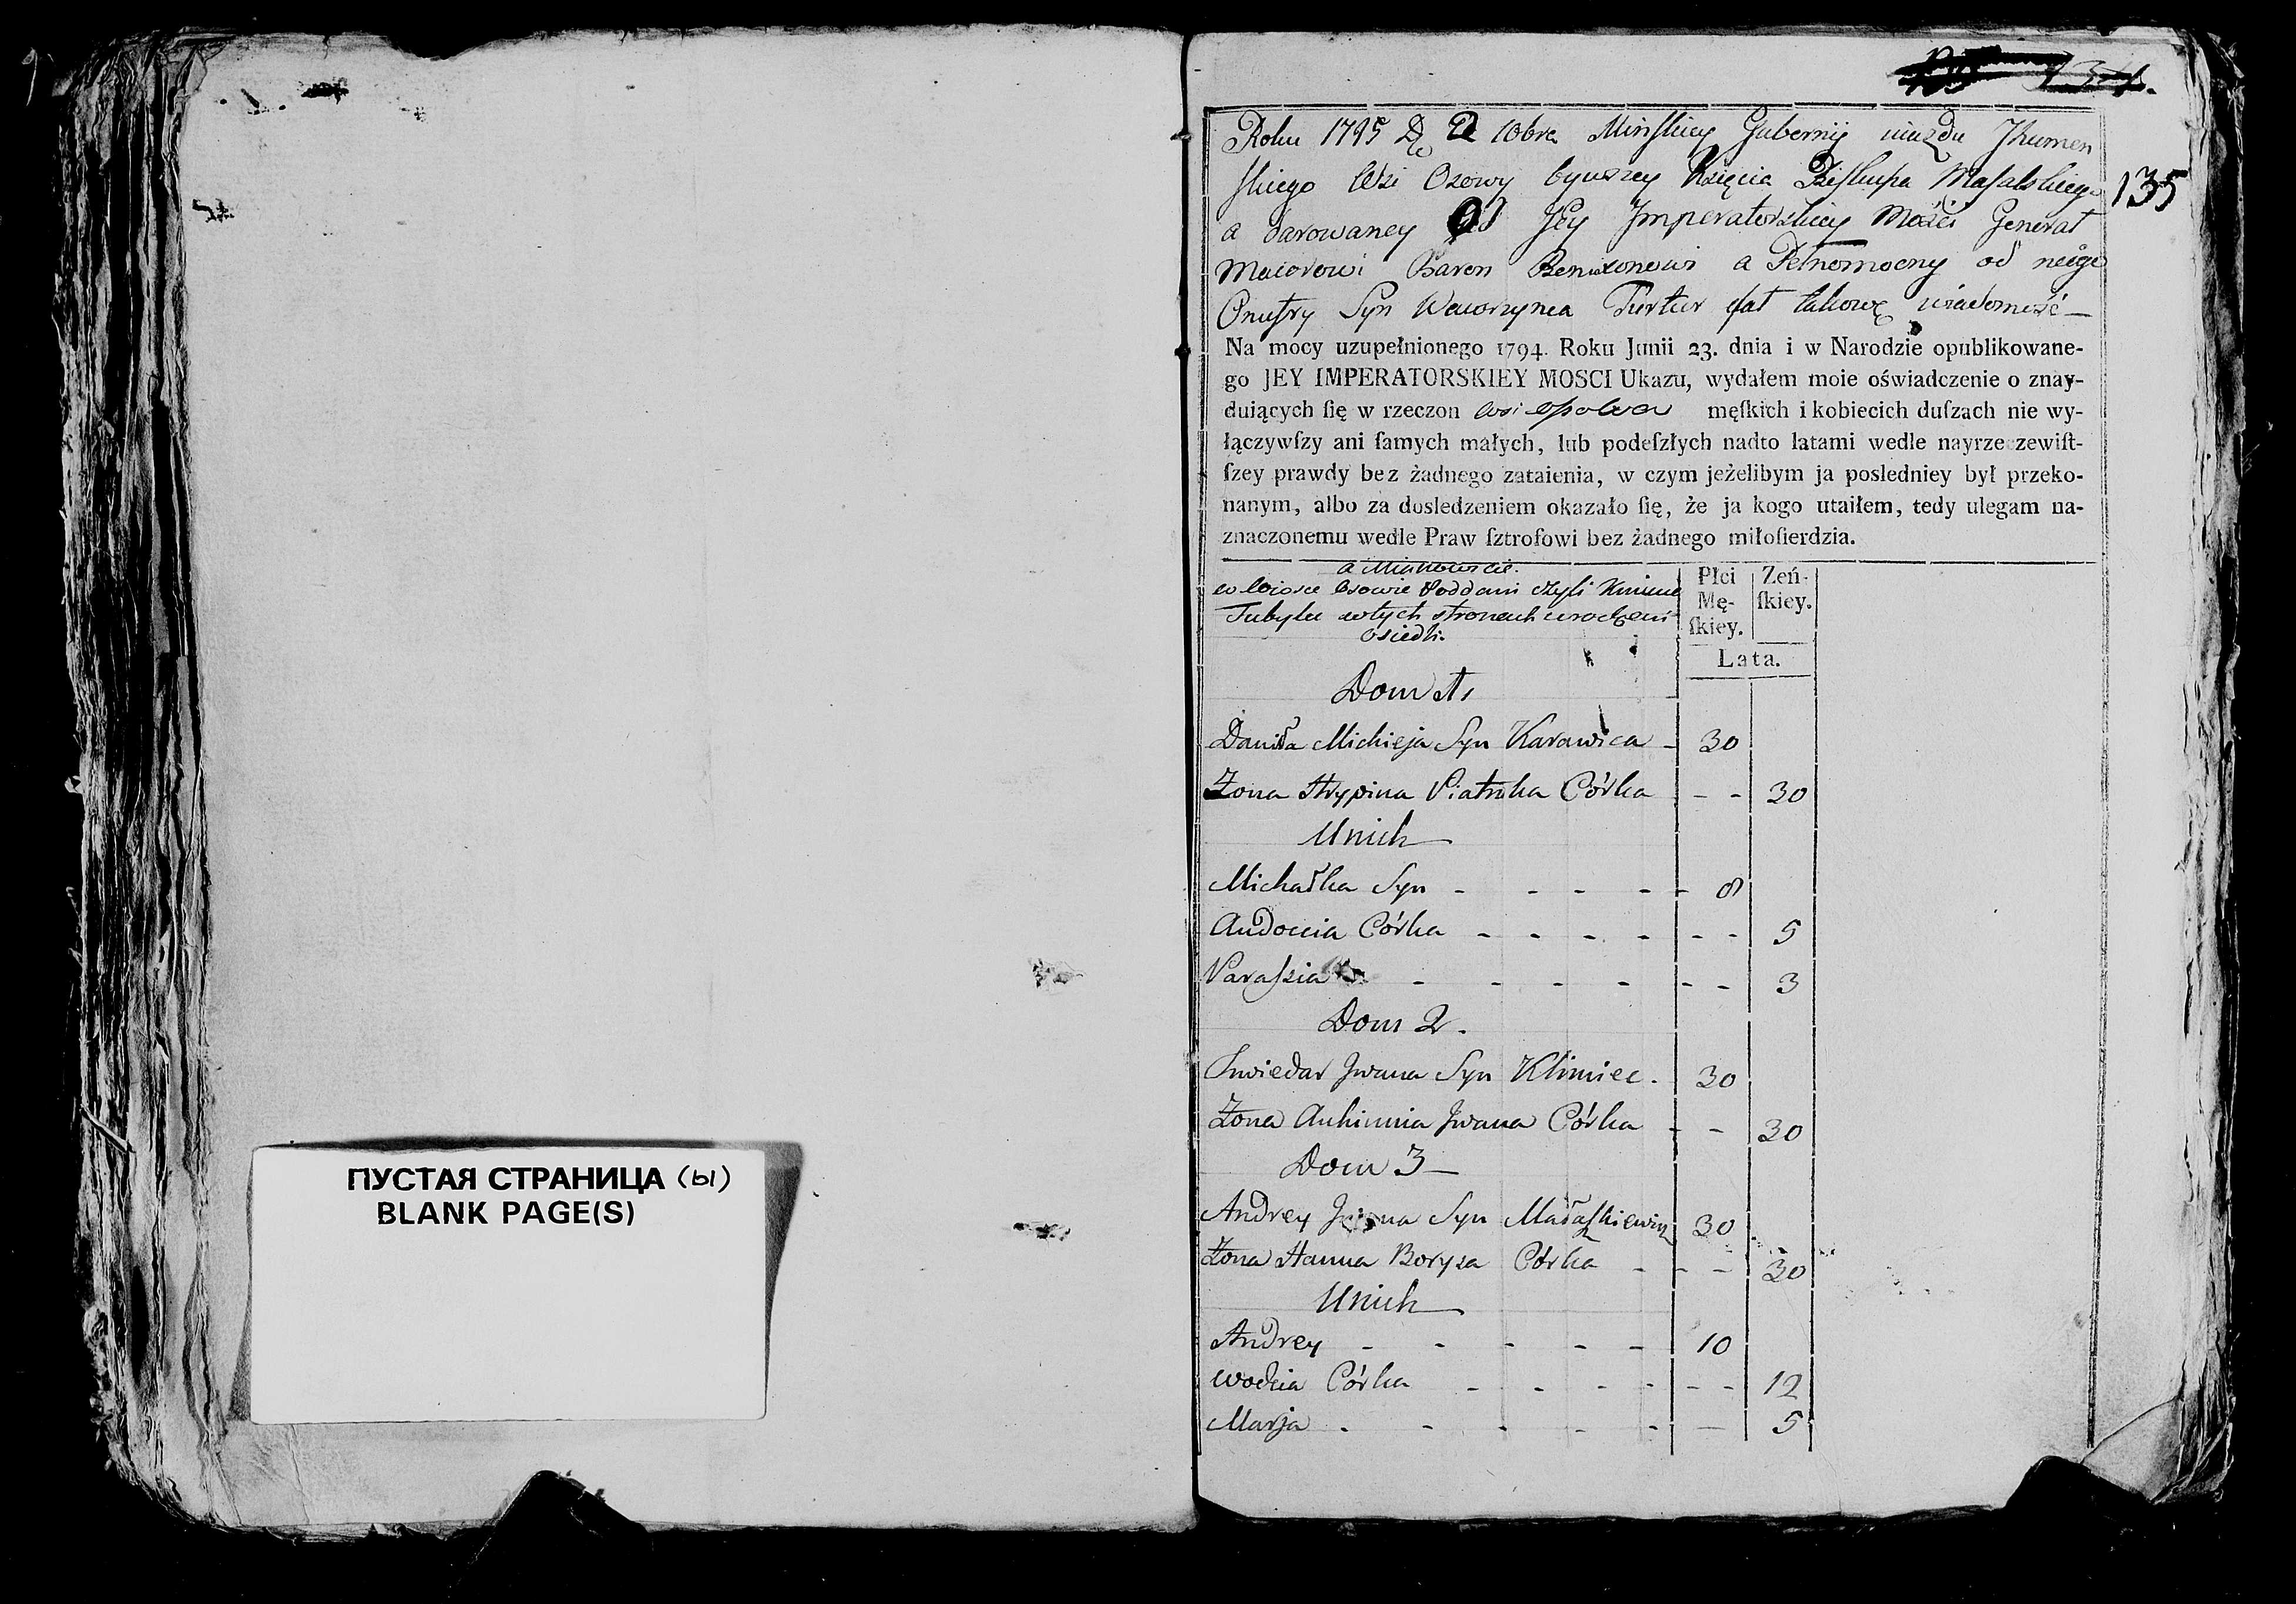 ПУСТАЯ СТРАНИЦА (ы)
BLANK PAGE(S)
135
Roku 1795 D 2 10bra Minſkiey Gubernij uiazdu Jhumen
ſkiego Wsi Osowy bywszey Księcia Biſkupa Maſalskiego
a darowaney Od Jey Imperatorskiey Mości Generał
Maiorowi Baron Benixonowi a Pełnomocny od niego
Onufry Syn Wawrzynca Turtur dał takowę wiadomość —
Na mocy uzupełnionego 1794. Roku Junii 23. dnia i w Narodzie opublikowane-
go JEY IMPERATORSKIEY MOSCI Ukazu, wydałem moie oświadczenie o znay-
duiących ſię w rzeczon wsi męſkich i kobiecich duſzach nie wy-
łączywſzy ani ſamych małych, lub podeſzłych nadto latami wedle nayrzeczewiſt-
ſzey prawdy bez żadnego zataienia, w czym jeżelibym ja posledniey był przeko-
nanym, albo za dosledzeniem okazało ſię, że ja kogo utaiłem, tedy ulegam na-
znaczonemu wedle Praw ſztrofowi bez żadnego miłoſierdzia.
a Mianowicie.
w Wiosce Osowie Poddani czyli Kmiecie
Tubylce w tych stronach urodzeni
osiedli.
Płci Mę-ſkiey.
Zeń-ſkiey.
Lata.
Dom 1
Daniła Michieja Syn Karawica - 30
Żona Hrypina Piatruka Córka - - 30
Unich
Michałka Syn - - - - - 8
Audoccia Córka - - - - - - 5
Paraſzia - - - - - - 3
Dom 2.
Chwiedar Jwana Syn Klimiec. 30
Żona Auhinnia Jwana Córka - - 30
Dom 3 —
Andrey Syn Małaſzkiewicz 30
Żona Hanna Borysa Córka - - - 30
Unich
Andrey - - - - - 10
Wodzia Córka - - - - - - 12
Marja - - - - - — 5